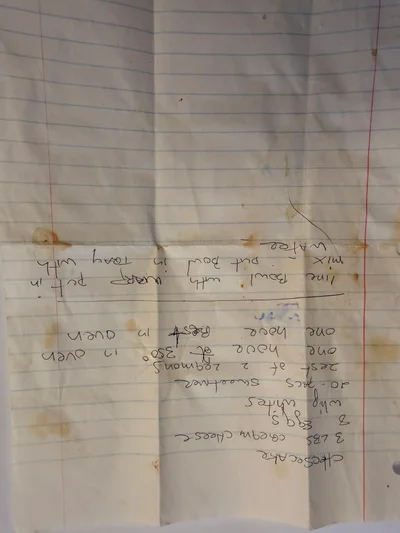 cheesecake
3 LBS cream cheese
3 eggs
whip whites
20-pcs sweetner
zest of 2 leamons
one hour at 350° in oven
one hour Rest in oven
line Bowl with warp put in
mix - put Bowl in Tray with
water